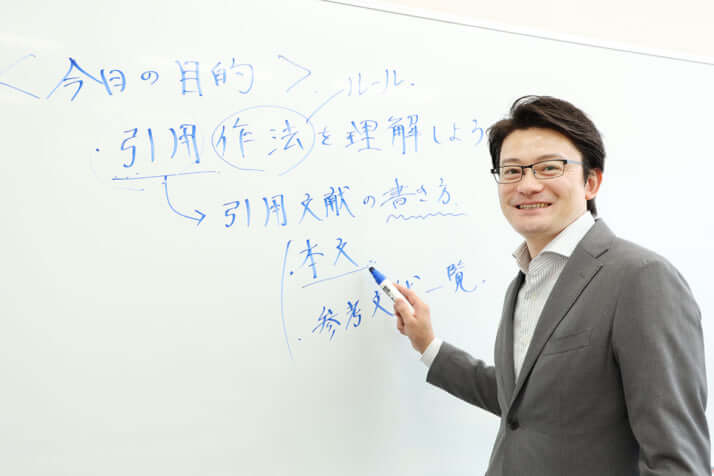 ＜今日の目的＞
ルール.
・引用作法を理解しよう
→引用文献の書き方
・本文
・参考文献一覧.